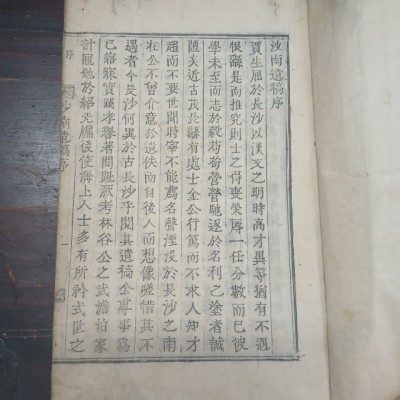 沙南遺稿序
賈生屈於長沙以漢文之期時高才異等猶有不遇
恨繇是而推究則士之得喪榮辱一任分數而已彼
學未至而志於穀苟苟營營馳逐於名利之塗者誠
隨矣近古茂長縣有處士全公行篤而不求人知才
超而不要世聞時宰不能薦名聲湮沒於長沙之南
在公不曾介意於遺佚而自後人而想像嗟惜其不
遇者今是沙何異於古長沙乎閱其遺稿公事事爲
已寤寐實踐孝譽著閭趾厥考林谷公之武澹泊家
計寵勉於紹先牖後使海上人士多有所矜式匪之
序
沙南遺稿序
一